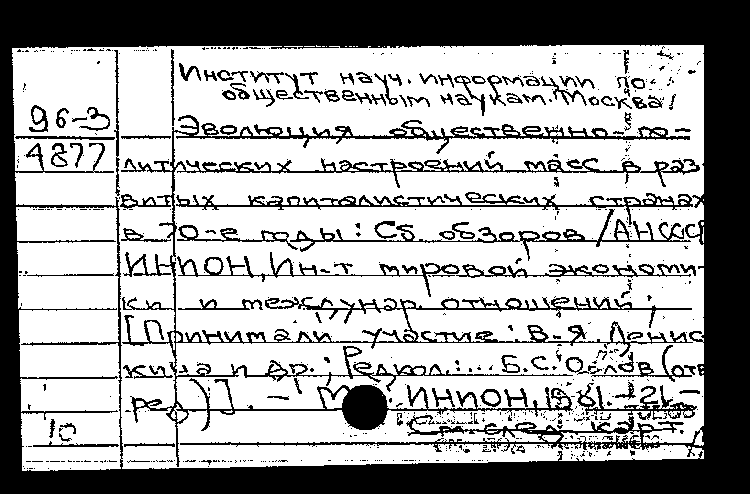 Институт науч. информации по
общественным наукам. Москва/
96-3
Эволюция общественно-по-
4877
литических настроений масс в раз-
витых капиталистических странах
в 70-е годы: Сб обзоров /АН СССР
ИНИОН, Ин-т мировой экономи-
ки и междунар. отношений;
[Принимали участие: В.Я. Денис
кина и др.; Редкол.: ... Б.С. Орлов (отв
ред)]. - М.: ИНИОН, 1981. - 21 -
10
См. след. карт.